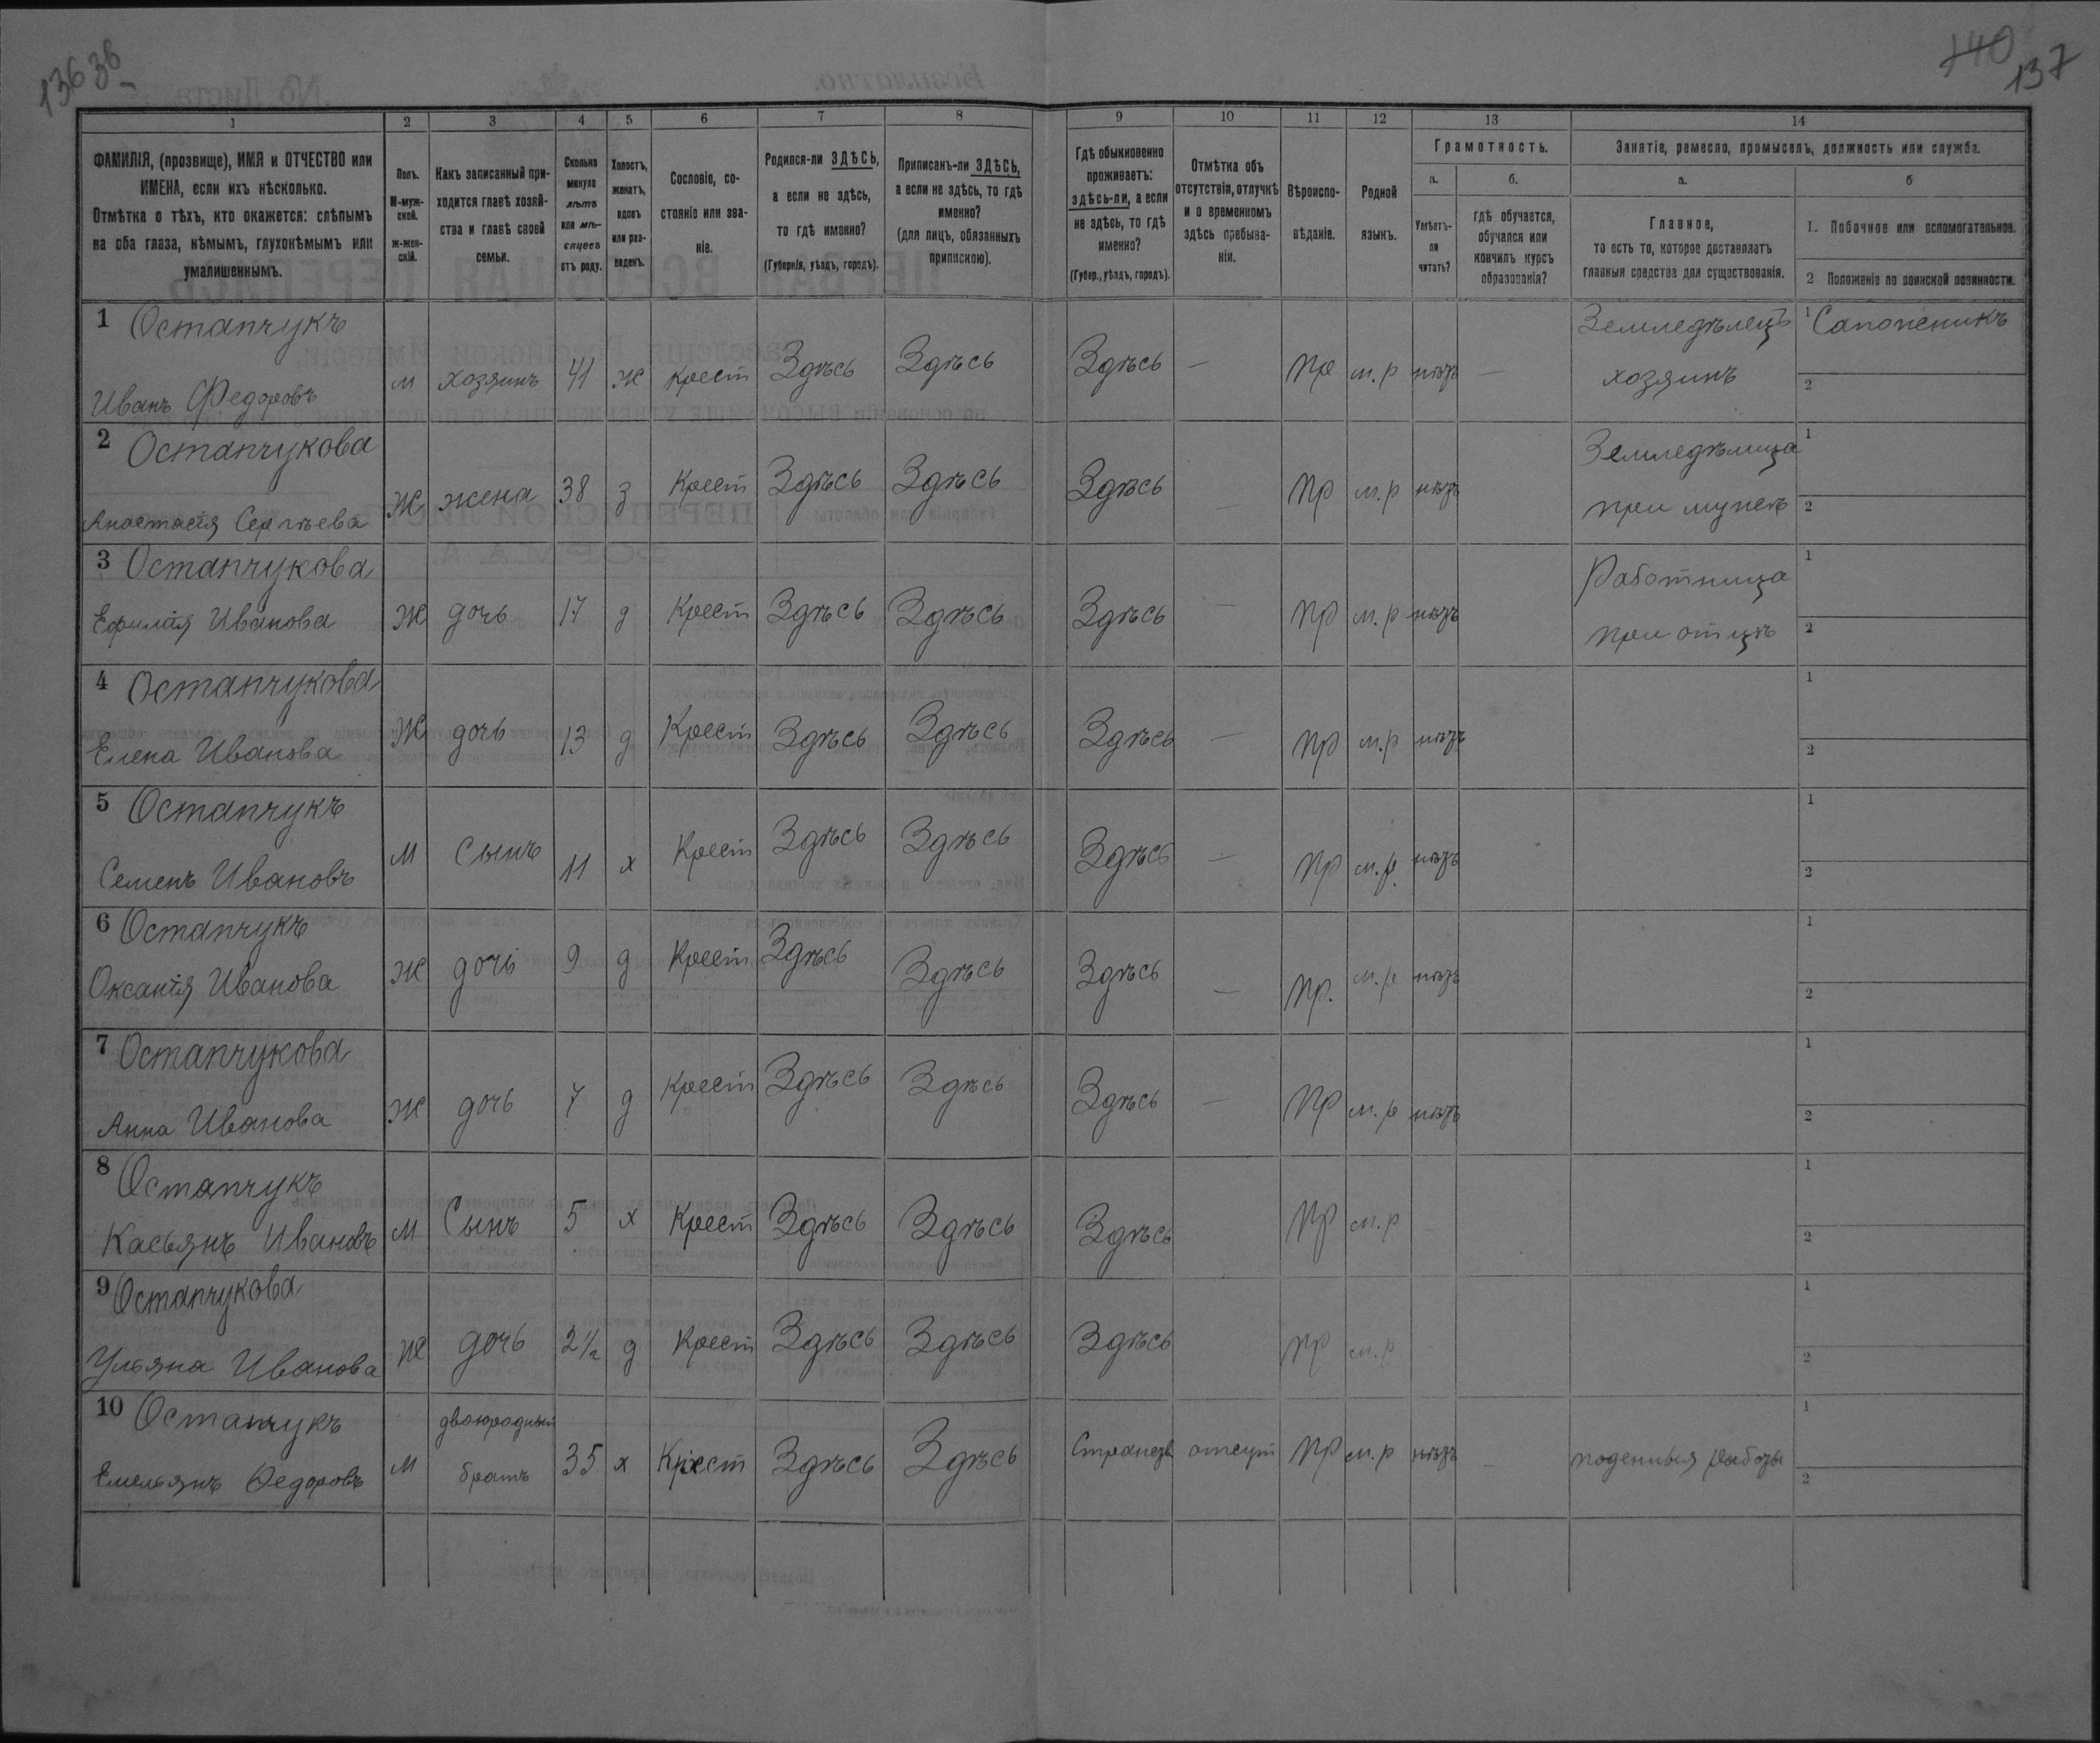 136 об
140
137
1
2
3
4
5
6
7
8
9
10
11
12
13
14
ФАМИЛІЯ, (прозвище), ИМЯ и ОТЧЕСТВО или ИМЕНА, если ихъ нѣсколько.
Отмѣтка о тѣхъ, кто окажется: слѣпымъ на оба глаза, нѣмымъ, глухонѣмымъ или умалишеннымъ.
Полъ. М-мужской. Ж-женскій.
Какъ записанный приходится главѣ хозяйства и главѣ своей семьи.
Сколько минуло лѣтъ или мѣсяцевъ отъ роду.
Холостъ, женатъ, вдовъ или разведенъ.
Сословіе, состояніе или званіе.
Родился-ли ЗДѢСЬ, а если не здѣсь, то гдѣ именно? (Губернія, уѣздъ, городъ).
Приписанъ-ли ЗДѢСЬ, а если не здѣсь, то гдѣ именно? (для лицъ, обязанныхъ припискою).
Гдѣ обыкновенно проживаетъ: здѣсь-ли, а если не здѣсь, то гдѣ именно? (Губер., уѣздъ, городъ).
Отмѣтка объ отсутствіи, отлучкѣ и о временномъ здѣсь пребываніи.
Вѣроисповѣданіе.
Родной языкъ.
Грамотность.
а.
Умѣетъ-ли читать?
б.
гдѣ обучается, обучался или кончилъ курсъ образованія?
Занятіе, ремесло, промыселъ, должность или служба.
а.
Главное, то есть то, которое доставляетъ главныя средства для существованія.
б
1. Побочное или вспомогательное.
2 Положеніе по воинской повинности.
1 Остапчукъ
Иванъ Федоровъ
м хозяинъ 41 ж крест Здѣсь Здѣсь Здѣсь — пр м.р нѣтъ —
Земледѣлецъ
хозяинъ
1 Сапожникъ
2
2 Остапчукова
Анастасія Сергѣева
Ж жена 38 з Крест Здѣсь Здѣсь Здѣсь — пр м.р нѣтъ
Земледѣлица
при мужѣ
1
2
3 Остапчукова
Ефимія Иванова
Ж дочь 17 д Крест Здѣсь Здѣсь Здѣсь — пр м.р нѣтъ
Работница
при отцѣ
1
2
4 Остапчукова
Елена Иванова
Ж дочь 13 д Крест Здѣсь Здѣсь Здѣсь — пр м.р нѣтъ
1
2
5 Остапчукъ
Семенъ Ивановъ
М Сынъ 11 х Крест Здѣсь Здѣсь Здѣсь — пр м.р. нѣтъ
1
2
6 Остапчукъ
Оксанія Иванова
Ж дочь 9 д Крест Здѣсь Здѣсь Здѣсь — пр. м.р нѣтъ
1
2
7 Остапчукова
Анна Иванова
Ж дочь 7 д Крест Здѣсь Здѣсь Здѣсь — пр м.р нѣтъ
1
2
8 Остапчукъ
Касьянъ Ивановъ
м Сынъ 5 х Крест Здѣсь Здѣсь Здѣсь пр м.р
1
2
9 Остапчукова
Ульяна Иванова
Ж дочь 2½ д Крест Здѣсь Здѣсь Здѣсь пр м.р
1
2
10 Остапчукъ
Емельянъ Федоровъ
м двоюродный
братъ
35 х Крест Здѣсь Здѣсь отсут пр м.р нѣтъ
поденныя работы
1
2